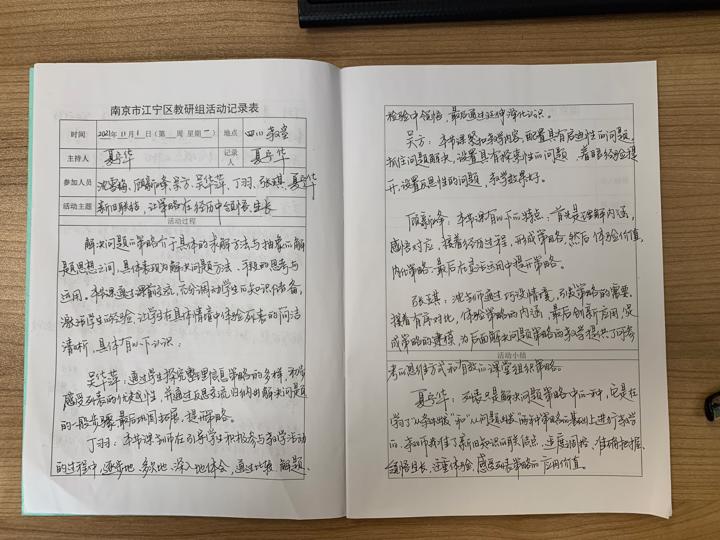 南京市江宁区教研组活动记录表
时间 2021年11月1日(第 周 星期一) 地点 四(1)教室
主持人 夏守华 记录人 夏守华
参加人员 沈雪梅、顾新峰、吴方、吴华萍、丁羽、张琪、夏守华
活动主题 新旧联结,让策略在经历中领悟、生长
活动过程
解决问题的策略介于具体的求解方法与抽象的解
题思想之间,具体表现为解决问题方法、手段的思考与
运用。本节课通过课前谈话,充分调动学生的知识储备,
激活学生的经验,让学生在具体情境中体验列表的简洁
清晰,具体有以下认识:
吴华萍:通过学生探究整理信息策略的多样,初步
感受列表的优越性,并通过反思交流归纳出解决问题
的一般步骤,最后巩固拓展,提升策略。
丁羽:本节课老师在引导学生积极参与教学活动
的过程中,逐步地、多次地、深入地体会,通过比较、解题、
检验中领悟,最后通过延伸深化认识。
吴方:本节课紧扣教学内容,配置具有启迪性的问题,
抓住问题解决,设置具有探索性的问题,着眼经验提
升,设置反思性的问题,教学效果好。
顾新峰:本节课有以下的特点,首先是理解内涵,
感悟对应,接着经历过程,形成策略,然后体验价值,
内化策略,最后在灵活运用中提升策略。
张琪:沈老师通过巧设情境,引发策略的需要,
接着有序对比,体验策略的内涵,最后创新应用,促
成策略的建模,为后面解决问题策略的教学提供了可参
活动小结
考的思维方式和有效的课堂组织策略。
夏守华:列表只是解决问题策略中的一种,它是在
学习了“从条件想起”和“从问题想起”两种策略的基础上进行教学
的,老师抓住了新旧知识的联结点,适度调控,准确把握,
领悟生长,注重体验,感受列表策略的应用价值。